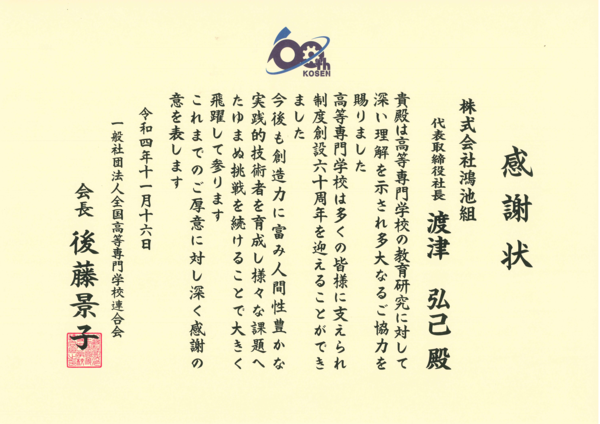 60th
KOSEN
感謝状
株式会社鴻池組
代表取締役社長 渡津 弘己 殿
貴殿は高等専門学校の教育研究に対して
深い理解を示され多大なるご協力を
賜りました
高等専門学校は多くの皆様に支えられ
制度創設六十周年を迎えることができ
ました
今後も創造力に富み人間性豊かな
実践的技術者を育成し様々な課題へ
たゆまぬ挑戦を続けることで大きく
飛躍して参ります
これまでのご厚意に対し深く感謝の
意を表します
令和四年十一月十六日
一般社団法人全国高等専門学校連合会
会長 後藤景子